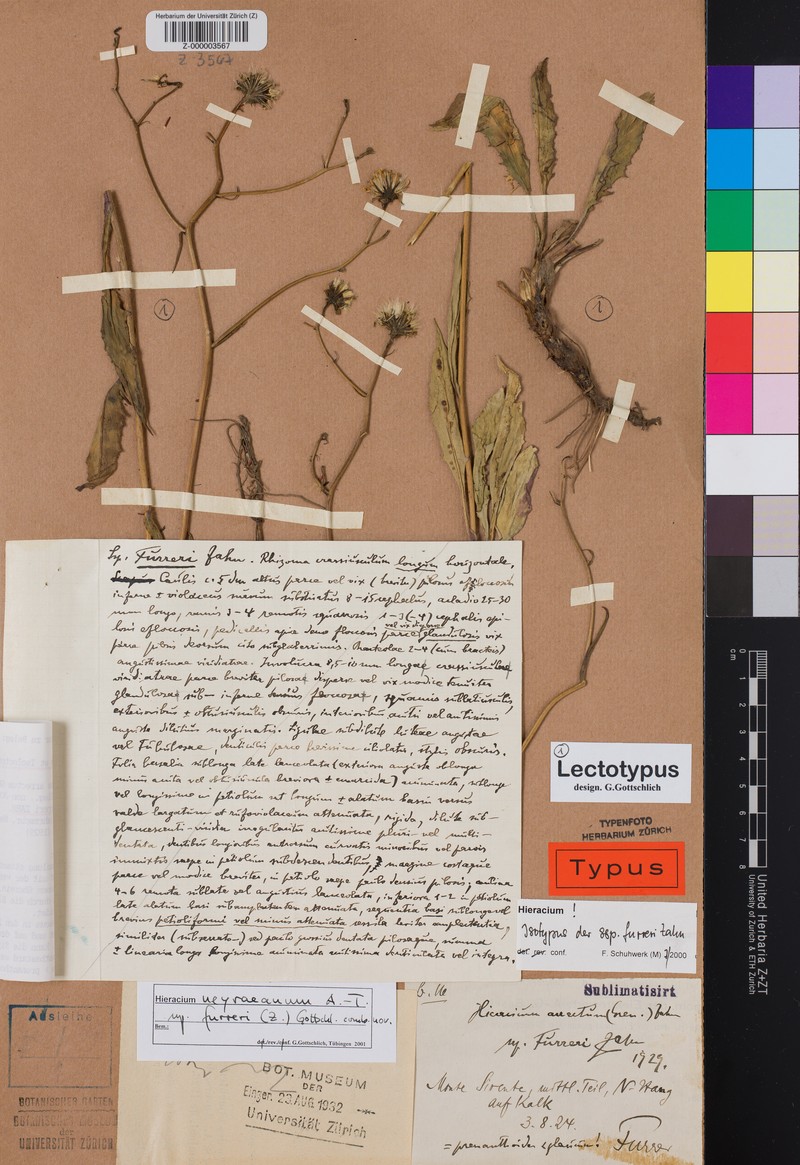 Herbarium der Universität Zürich (Z)
Z-000003567
Z 3567
1
1
Ssp. Furreri Zahn. Rhizoma crassiusculum longum horizontale,
Caulis c. 5 dm altus parce vel vix (breviter) pilosus efloccosus
inferne ± violaceus sursum substriatus 8-15 cephalus, acladio 25-30
mm longo, ramis 3-4 remotis squarrosis, 1-3(-4) cephalis epi-
losis efloccosis, pedicellis apice
vel vix
parce glandulosis vix
parce pilosis deorsum cito subglaberrimis. Bracteolae 2-4 (cum bracteis)
angustissimae viridiatrae. Involucra 8,5-10 mm longa crassiuscula
viridiatra parce breviter pilosa disperse vel vix modice tenuiter
glandulosa inferne densius floccosa, squamis sublatiusculis
exterioribus ± obtusiusculis obscuris, interioribus acutis vel acutissimis
anguste dilutius marginatis. Ligulae subdilute luteae angustae
vel tubulosae, denticulis parce ciliolatis, stylis obscuris.
Folia basalia oblonga late lanceolata (exteriora anguste oblonga
minus acuta vel obtusiuscula breviora ± emarcida) acuminata,
vel longissime in petiolum ut longum ± alatum basin versus
valde largatum et rufoviolaceum attenuata, rigida, dilute sub-
glaucescenti-viridia irregulariter acutissime pluri- vel multi-
dentata, dentibus longioribus antrorsum curvatis minoribus vel parvis
immixtis saepe in petiolum subdescendentibus, margine costaque
parce vel modice breviter, in petiolo saepe paulo densius pilosis; caulina
4-6 remota sublate vel angustius lanceolata, inferiora 1-2 in petiolum
late alatum basi subamplectentem attenuata, sequentia basi
brevius petioliformi vel minus attenuata sessilia leviter amplectentia,
similiter (subserratim) sed paulo grossius dentata pilosaque, summa
± linearia longe longissime acuminata acutissima denticulata vel integra.
1
Lectotypus
design. G.Gottschlich
TYPENFOTO
HERBARIUM ZÜRICH
Typus
Hieracium !
Isotypus der ssp. furreri Zahn
det. rev. conf. F. Schuhwerk (M) 2/2000
Hieracium neyraeanum A.-T.
ssp. furreri (Z.) Gottschl. comb. nov.
Bem.:
det/rev/conf. G.Gottschlich, Tübingen 2001
Ausleihe
BOTANISCHER GARTEN
UNIVERSITÄT ZÜRICH
BOT. MUSEUM
DER
Einger. 23.AUG 1932
Universität Zürich
Sublimatisirt
Hieracium
ssp. Furreri Zahn
1929.
Monte Sirente, mittl. Teil, N-Hang
auf Kalk
3.8.24.
Furrer
= prenanthoides glaucum!
cm
0
1
2
3
4
5
6
7
8
United Herbaria Z+ZT
University of Zurich & ETH Zurich